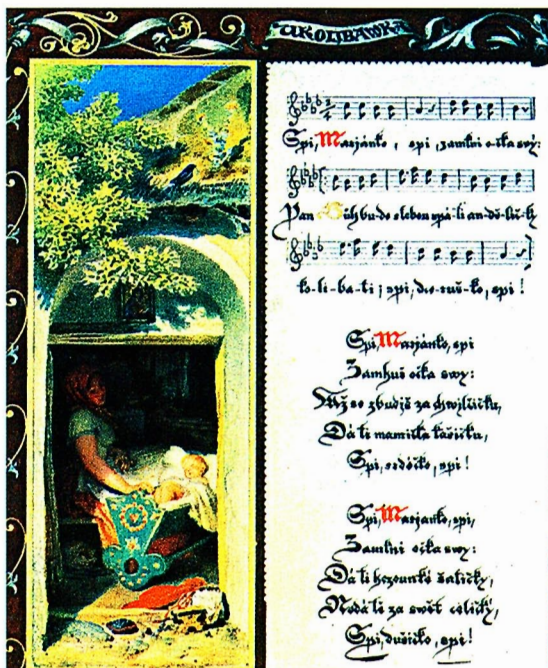 UKOLIBAWKA
Spi, Marjánko, spi, zamkni očka swý:
Pan Bůh bu-de s tebou spá-ti an-dě-lič-ky
ko-li-ba-ti; spi, du-ruš-ko, spi!
Spi, Marjánko, spi
Zamhuř očka swy:
Až se zbudjš za chwjlčičku,
Dá ti mamička kašičku,
Spi, srdéčko, spi!
Spi, Marjánko, spi,
Zamkni očka swy:
Dá ti hezounké šatičky,
Nedá tě za swět celičký,
Spi, dušičko, spi!